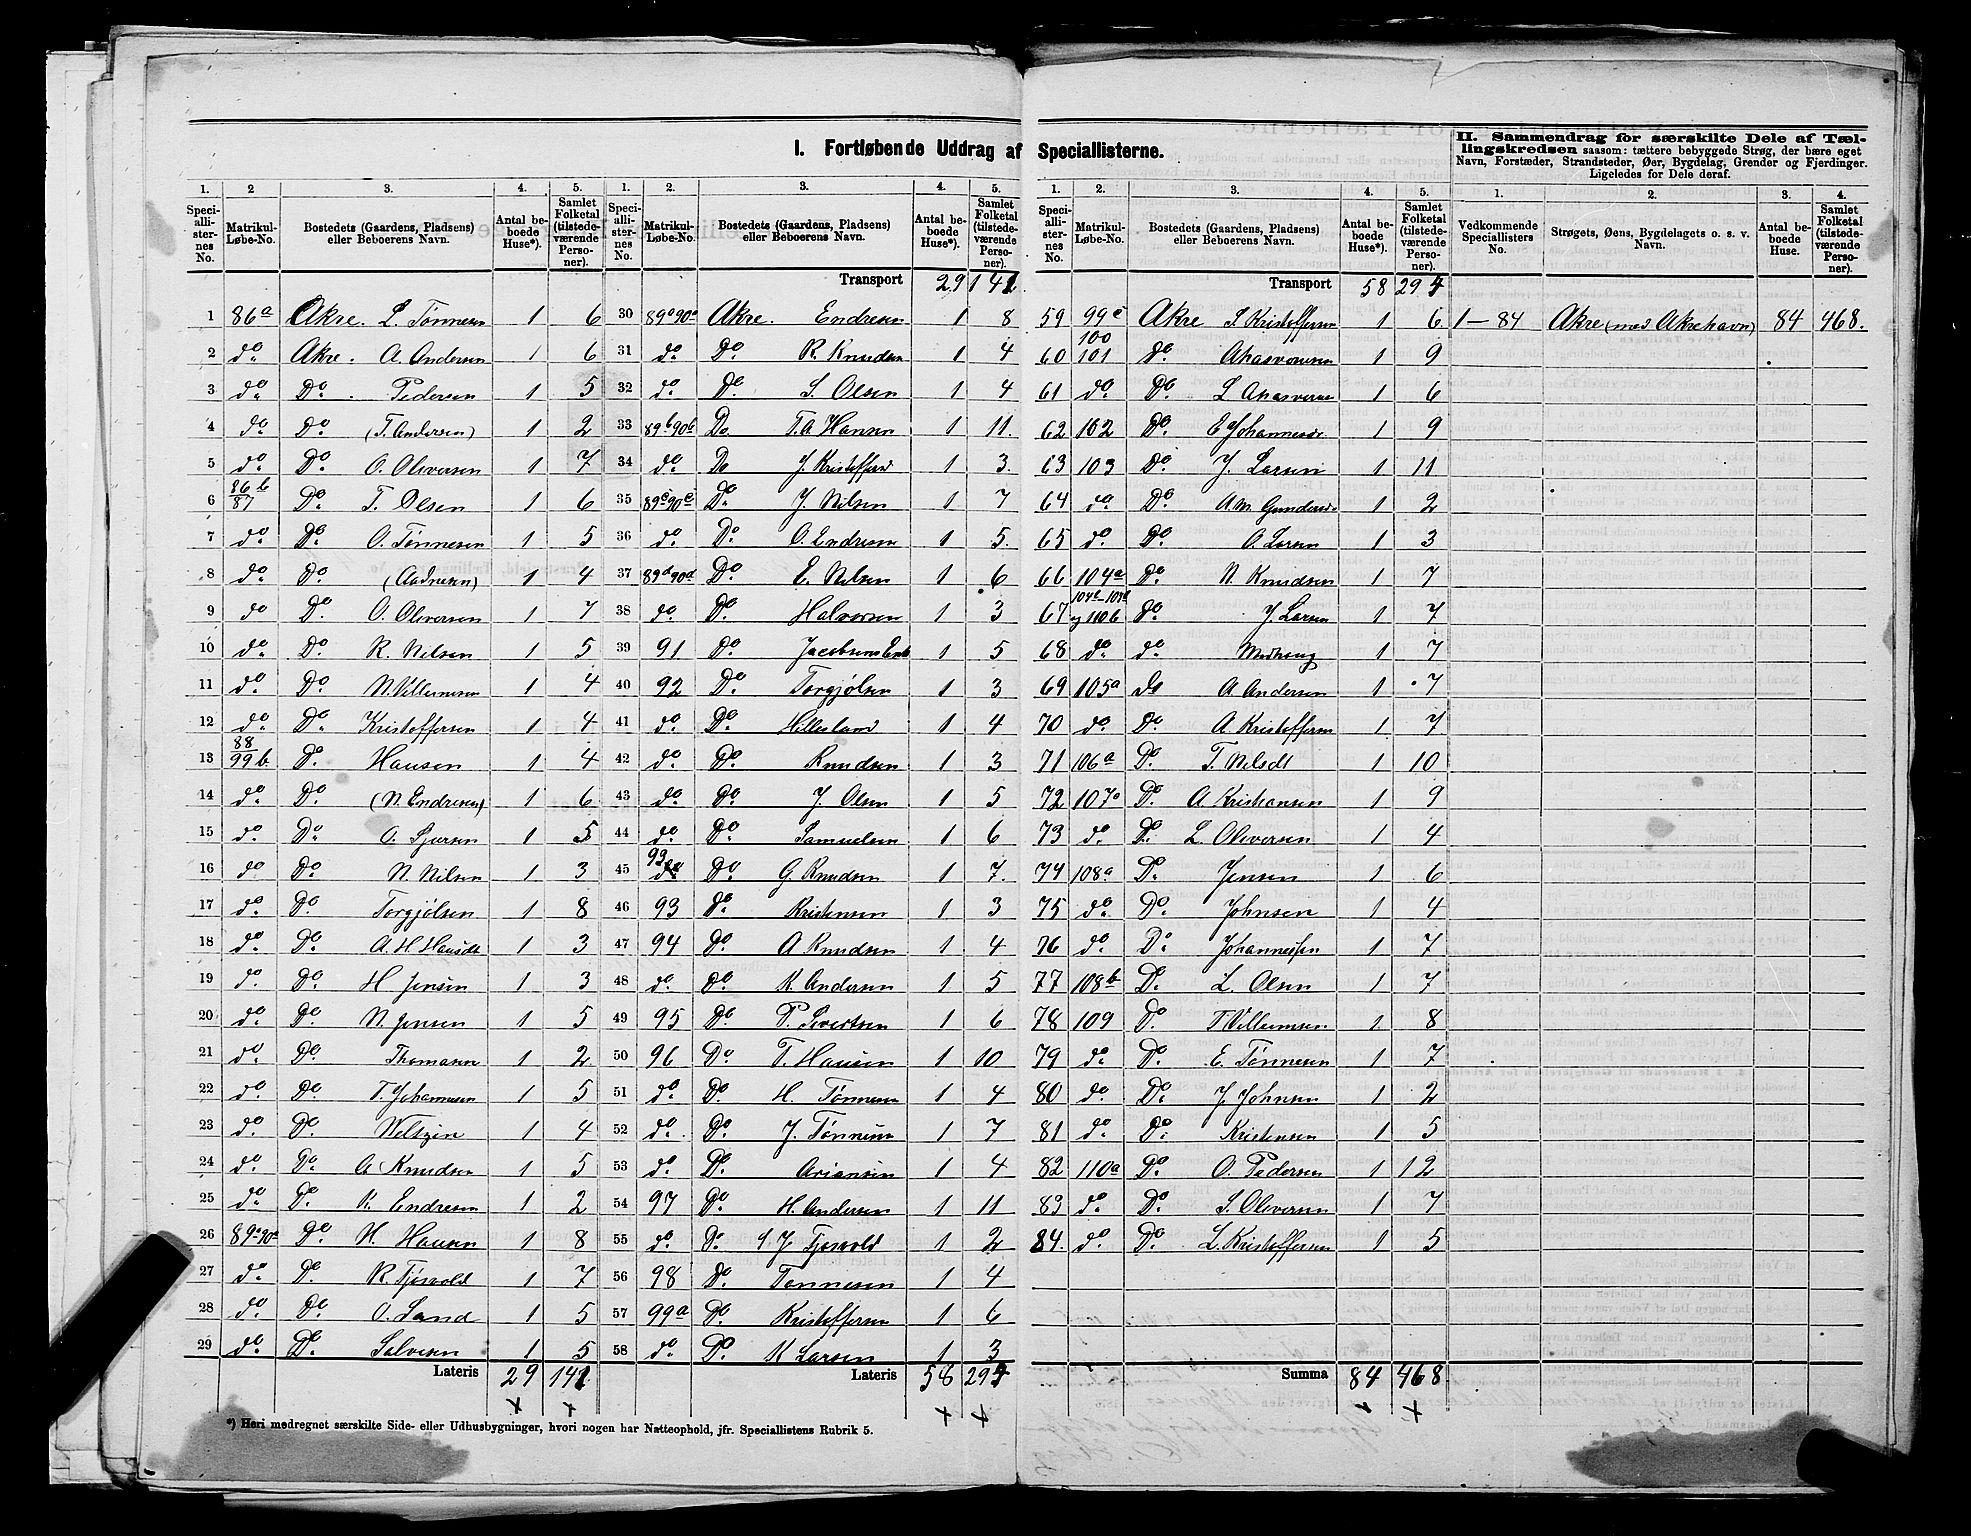 I. Fortløbende Uddrag af Speciallisterne.
II. Sammendrag for særskilte Dele af Tællingskredsen saasom: tættere bebyggede Strøg, der bære eget
Navn, Forstæder, Strandsteder, Øer, Bygdelag, Grender og Fjerdinger.
Ligeledes for Dele deraf.
1. 2 3. 4. 5. 1. 2. 3. 4. 5. 1. 2. 3. 4. 5. 1. 2. 3. 4.
Speciallisternes No. Matrikul-Løbe-No. Bostedets (Gaardens, Pladsens) eller Beboerens Navn. Antal beboede Huse*). Samlet Folketal (tilstedeværende Personer).
Speciallisternes No. Matrikul-Løbe-No. Bostedets (Gaardens, Pladsens) eller Beboerens Navn. Antal beboede Huse*). Samlet Folketal (tilstedeværende Personer).
Speciallisternes No. Matrikul-Løbe-No. Bostedets (Gaardens, Pladsens) eller Beboerens Navn. Antal beboede Huse*). Samlet Folketal (tilstedeværende Personer).
Vedkommende Speciallisters No. Strøgets, Øens, Bygdelagets o. s. v. Navn. Antal beboede Huse. Samlet Folketal (tilstedeværende Personer).
1 86a Akre. L. Tønnesen 1 6
2 do Akre. A. Andersen 1 6
3 do Do. Pedersen 1 5
4 do Do (T. Andersen) 1 2
5 do Do. O. Oliversen 1 7
6 86b 87 Do T. Olsen 1 6
7 do Do. O. Tønnesen 1 5
8 do Do. (Aadnesen) 1 4
9 do Do. O. Oliversen 1 7
10 do Do. R. Nilsen 1 5
11 do Do. N. Villumsen 1 4
12 do Do Kristoffersen 1 4
13 88 99b. Do. Hansen 1 4
14 do Do. (N. Endresen) 1 6
15 do Do O. Sjursen 1 5
16 do Do N. Nilsen 1 3
17 do Do. Torgjølsen 1 8
18 do Do A. H. Hansdt 1 3
19 do. Do H Jensen 1 3
20 do Do. N. Jensen 1 5
21 do Do Thomasen 1 2
22 do. Do T. Johannesen 1 5
23 do. Do. Weltzin 1 4
24 do. Do A Knudsen 1 5
25 do Do. K. Endresen 1 2
26 89a 90a Do. H. Hansen 1 8
27 do Do. R. Tjøsvold 1 7
28 do. Do O. Sand 1 5
29 do Do. Salvesen 1 5
Lateris 29 141
Transport 29 141
30 89a 90a Akre. Endresen 1 8
31 do Do R. Knudsen 1 4
32 do Do. S. Olsen 1 4
33 89b 90b Do T. A. Hansen 1 11.
34 do. Do J. Kristoffersd 1 3.
35 89c 90c Do J. Nilsen 1 7
36 do. Do O. Endresen 1 5.
37 89d 90d Do. E. Nilsen 1 6
38 do. Do. Halvorsen 1 3
39 91 Do. Jacobsens Enke 1 5
40 92 Do. Torgjølsen 1 3
41 do. Do Hillesland 1 4
42 do. Do. Knudsen 1 3
43 do. Do J. Olsen 1 5
44 do. Do Samuelsen 1 6
45 93 do Do G. Knudsen 1 7.
46 93 do Kristensen 1 3
47 94 Do A Knudsen 1 4
48 do. Do K. Andersen 1 5
49 95 Do P. Sivertsen 1 6
50 96 Do T. Hansen 1 10
51 do. Do. H. Tønnesen 1 4
52 do. Do. J. Tønnesen 1 7
53 do. Do Ariansen 1 4
54 97 Do H. Andersen 1 11
55 do. Do J. Tjøsvold 1 2
56 98 Do. Tønnesen 1 4
57 99a Do Kristoffersen 1 6
58 do. Do. K Larsen 1 3
Lateris 58 294
Transport 58 294
59 99c Akre S Kristoffersen 1 6
60 100 101 do. Ahasverusen 1 9
61 do. Do. L Ahasverusen 1 6
62 102 Do. E Johannesdr 1 9
63 103 Do. J. Larsen 1 11
64 do. Do. A. M. Gundersd 1 2
65 do. Do. O. Larsen 1 3
66 104a Do. N. Knudsen 1 7
67 og 110b do. J. Larsen 1 7
68 do. do. 1 7
69 105a do A Andersen 1 7
70 do. Do. A Kristoffersen 1 7
71 106a Do. T. Nilsdt 1 10
72 107a Do. A Kristiansen 1 9
73 do. Do. L. Oliversen 1 4
74 108a Do. Jensen 1 6
75 do. Do. Johnsen 1 4
76 do. Do Johannessen 1 7
77 108b Do. L. Olsen 1 7
78 109 Do. T Villumsen 1 8
79 do. Do. E. Tønnesen 1 7
80 do. Do. J. Johnsen 1 2
81 do. Do. Kristensen 1 5
82 110a Do. O. Pedersen 1 12
83 do. Do. S. Oliversen 1 7
84. do. Do. L. Kristoffersen 1 5
Summa 84 468
1—84 Akre (med Akrehavn) 84 468.
*) Heri medregnet særskilte Side- eller Udhusbygninger, hvori nogen har Natteophold, jfr. Speciallistens Rubrik 5.